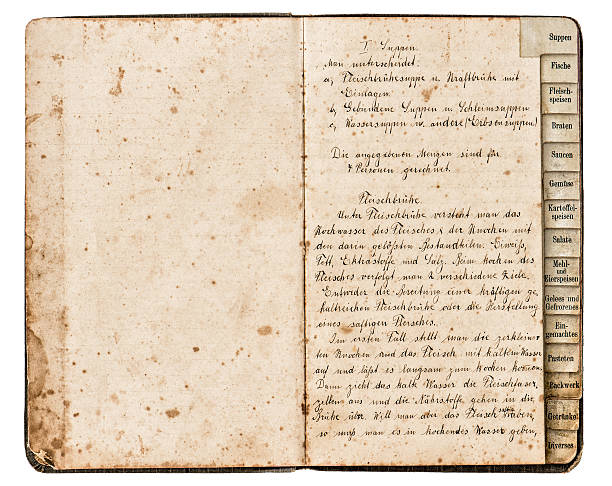 I. Suppen.
Man unterscheidet:
a, Fleischbrühesuppe u. Kraftbrühe mit
Einlagen.
b, Gebundene Suppen u. Schleimsuppen
c, Wassersuppen u. andere (Erbsensuppen)
Die angegebenen Mengen sind für
4 Personen gerechnet.
Fleischbrühe.
Unter Fleischbrühe versteht man das
Kochwasser des Fleisches & der Knochen mit
den darin gelößten Bestandteilen: Eiweiß,
Fett, Extrastoffe und Salz. Beim kochen des
Fleisches verfolgt man 2 verschiedene Ziele.
Entweder die Bereitung einer kräftigen ge
haltreichen Fleischbrühe oder die Herstellung
eines saftigen Fleisches.
Im ersten Fall stellt man die zerkleiner
ten Knochen und das Fleisch mit kaltem Wasser
auf und läßt es langsam zum kochen kommen.
Dann zieht das kalte Wasser die Fleischfaser,
zellen aus und die Nährstoffe gehen in die
Brühe über. Will man aber das Fleisch saftig haben,
so muß man es in kochendes Wasser geben,
Suppen
Fische
Fleisch-
speisen
Braten
Saucen
Gemüse
Kartoffel-
speisen
Salate
Mehl-
und
Eierspeisen
Gelees und
Gefrorenes
Ein-
gemachtes
Pasteten
Backwerk
Getränke
Diverses